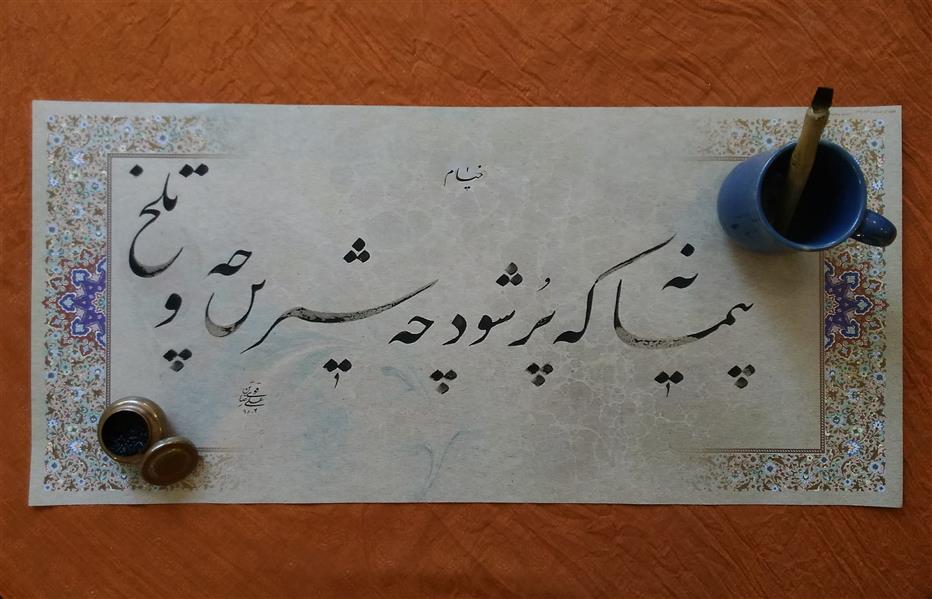 خیام
پیمانه که پُر شود چه شیرین و چه تلخ